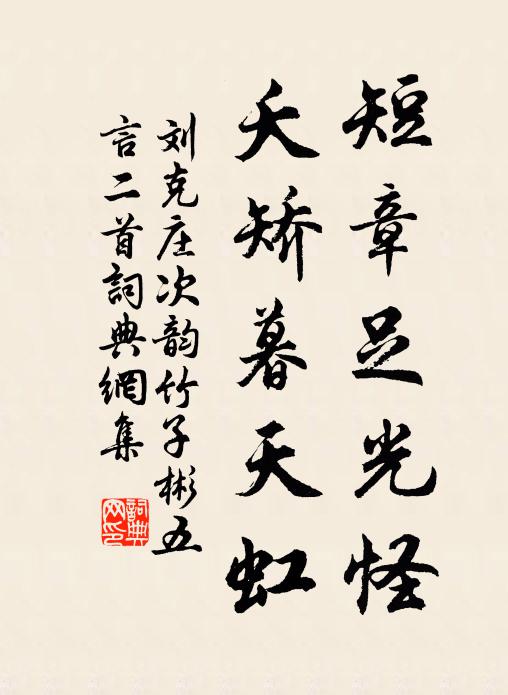 短章足光怪
夭矫暮天虹
刘克庄次韵竹子彬五
言二首詞典網集
詞典
网印